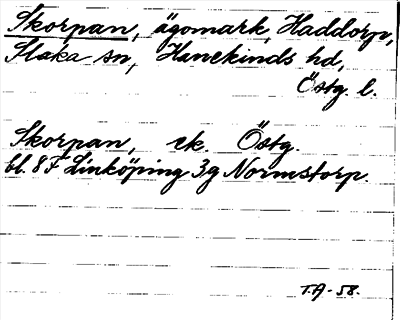 Skorpan, ägomark, Haddorp,
Slaka sn, Hanekinds hd,
Östg. l.
Skorpan, ek. Östg.
bl. 8F Linköping 3g Normstorp.
T.A-58.